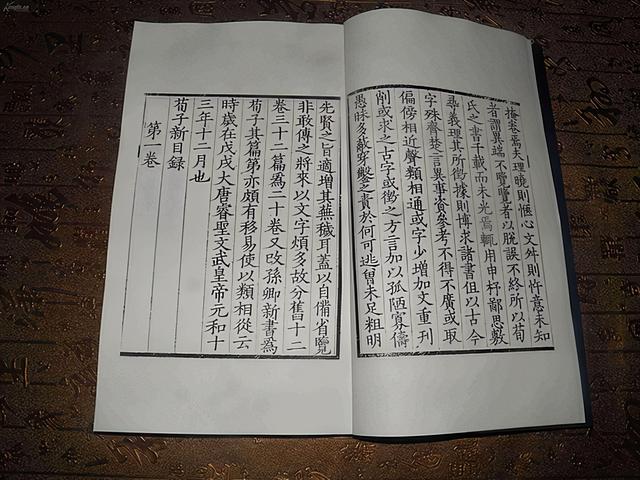 掩卷焉夫理曉則愜心文舛則忤意未知
者謂異端不覽覽者以脫誤不終所以荀
氏之書千載而未光焉輒用申杼鄙思敷
尋義理其所徵據則博求諸書但以古今
字殊齊楚言異事資參考不得不廣或取
偏傍相近聲類相通或字少增加文重刊
削或求之古字或徵之方言加以孤陋寡儔
愚昧多蔽穿鑿之責於何可逃曾未足粗明
先賢之旨適增其蕪穢耳蓋以自備省覽
非敢傳之將來以文字煩多故分舊十二
卷三十二篇爲二十卷又改孫卿新書爲
荀子其篇第亦頗有移易使以類相從云
時歲在戊戌大唐睿聖文武皇帝元和十
三年十二月也
荀子新目録
第一卷